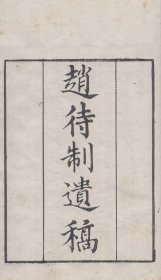 趙待制遺稿